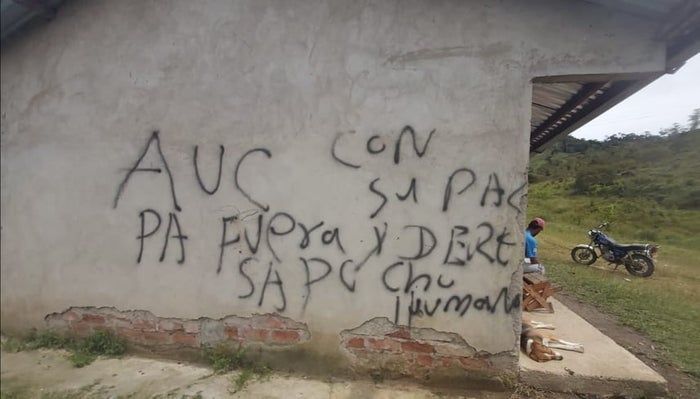 AUC CON
SU PAC
PA FUera y DERE
SAPO Chu
humano